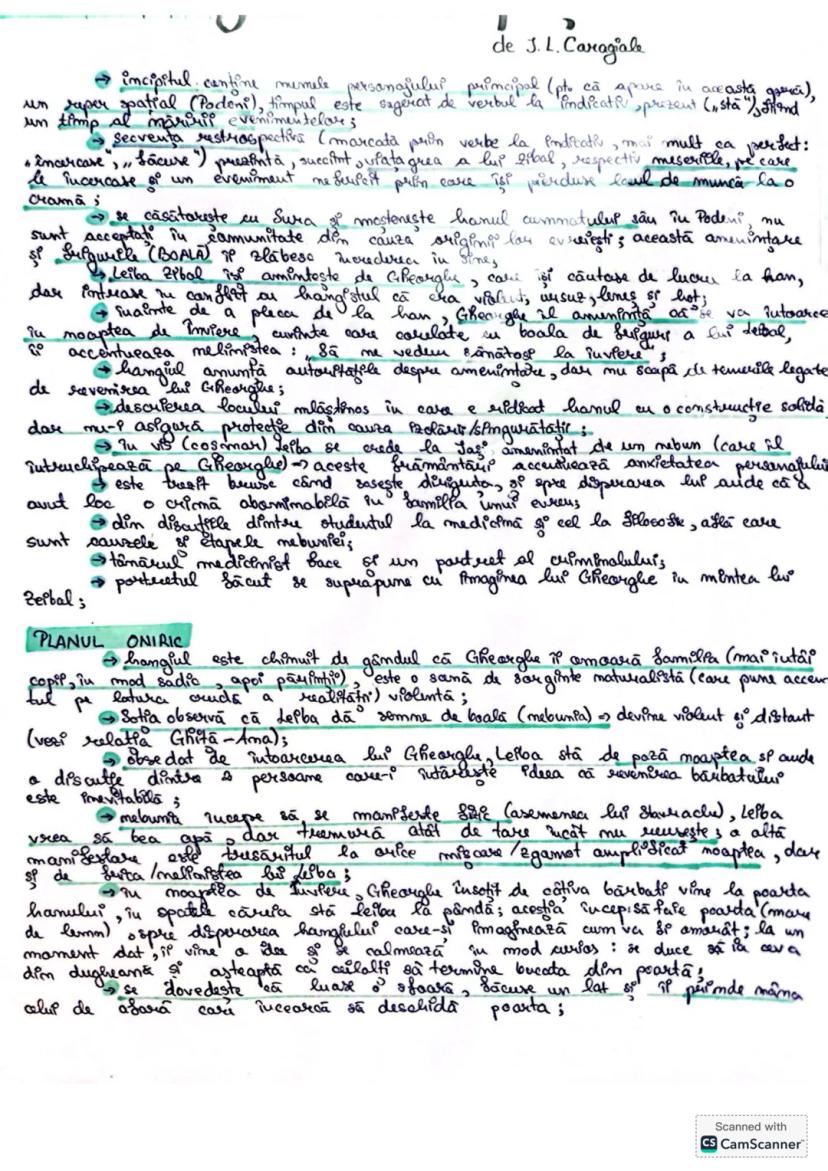 de I.L. Caragiale
→ incipitul conține numele personajului principal (pt. că apare în această operă),
un reper spațial (Podeni), timpul este sugerat de verbul la indicativ, prezent („stă"), fiind
un timp al măririi evenimentelor;
→ secvența restrospectivă (marcată prin verbe la indicativ, mai mult ca perfect:
„încercase", „făcuse") prezintă, succint, viața grea a lui Zibal, respectiv meseriile, pe care
le încercase și un eveniment nefericit prin care își pierduse locul de muncă la o
cramă;
→ se căsătorește cu Sura și moștenește hanul cumnatului său în Podeni, nu
sunt acceptați în comunitate din cauza originii lor evreiești; această amenințare
și frigurile (BOALĂ) îi slăbesc încrederea în sine,
→ Leiba Zibal își amintește de Gheorghe, care își căutase de lucru la han,
dar intrase în conflict cu hangiul că era violent, ursuz, leneș și hoț;
→ înainte de a pleca de la han, Gheorghe îl amenință că se va întoarce
în noaptea de Înviere, cuvinte care corelate cu boala de friguri a lui Zeibal,
îi accentuează neliniștea: „Să ne vedem sănătoși la înviere";
→ hangiul anunță autoritățile despre amenințare, dar nu scapă de temerile legate
de revenirea lui Gheorghe;
→ descrierea locului mlăștinos în care e ridicat hanul cu o construcție solidă,
dar nu-i asigură protecție din cauza izolării/singurătății;
→ în vis (coșmar) Leiba se crede la Iași amenințat de un nebun (care îl
întruchipează pe Gheorghe) → aceste frământări accentuează anxietatea personajului
→ este trezit brusc când sosește diligența, și spre disperarea lui aude că a
avut loc o crimă abominabilă în familia unui evreu;
→ din discuțiile dintre studentul la medicină și cel la filosofie, află care
sunt cauzele și etapele nebuniei;
→ tânărul medicinist face și un portret al criminalului;
→ portretul făcut se suprapune cu imaginea lui Gheorghe în mintea lui
Zeibal;
PLANUL ONIRIC
→ hangiul este chinuit de gândul că Gheorghe îi omoară familia (mai întâi
copii, în mod sadic, apoi părinții), este o scenă de sorginte naturalistă (care pune accen
tul pe latura crudă a realității) violentă;
→ Soția observă că Leiba dă semne de boală (nebunia) → devine violent și distant
(vezi relația Ghiță-Ana);
→ obsedat de întoarcerea lui Gheorghe, Leiba stă de pază noaptea și aude
o discuție dintre 2 persoane care-i întărește ideea că revenirea bărbatului
este inevitabilă;
→ nebunia începe să se manifeste fizic (asemenea lui Stavrache), Leiba
vrea să bea apă, dar tremură atât de tare încât nu reușește; o altă
manifestare este tresăritul la orice mișcare/zgomot amplificat noaptea, dar
și de frica/neliniștea lui Leiba;
→ în noaptea de Înviere, Gheorghe însoțit de câțiva bărbați vine la poarta
hanului, în spatele căreia stă Leiba la pândă; aceștia încep să taie poarta (mare
de lemn) spre disperarea hangiului care-și imaginează cum va fi omorât; la un
moment dat, îi vine o idee și se calmează în mod curios: se duce să ia ceva
din dugheană și așteaptă ca ceilalți să termine bucata din poartă;
→ se dovedește că luase o sfoară, făcuse un laț și îi prinde mâna
celui de afară care încearcă să deschidă poarta;
Scanned with
CS CamScanner